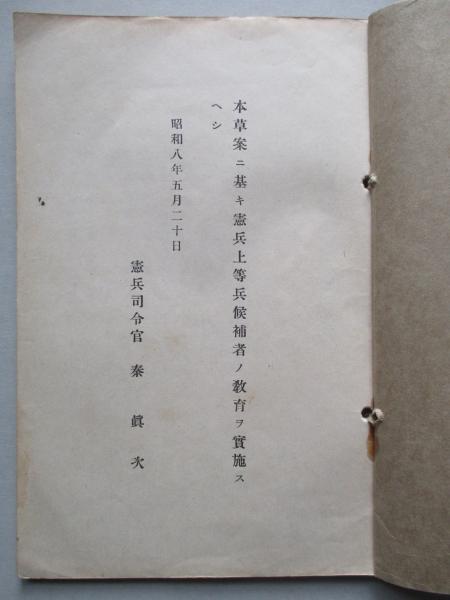 本草案ニ基キ憲兵上等兵候補者ノ教育ヲ實施ス
ヘシ
昭和八年五月二十日
憲兵司令官 秦 眞次